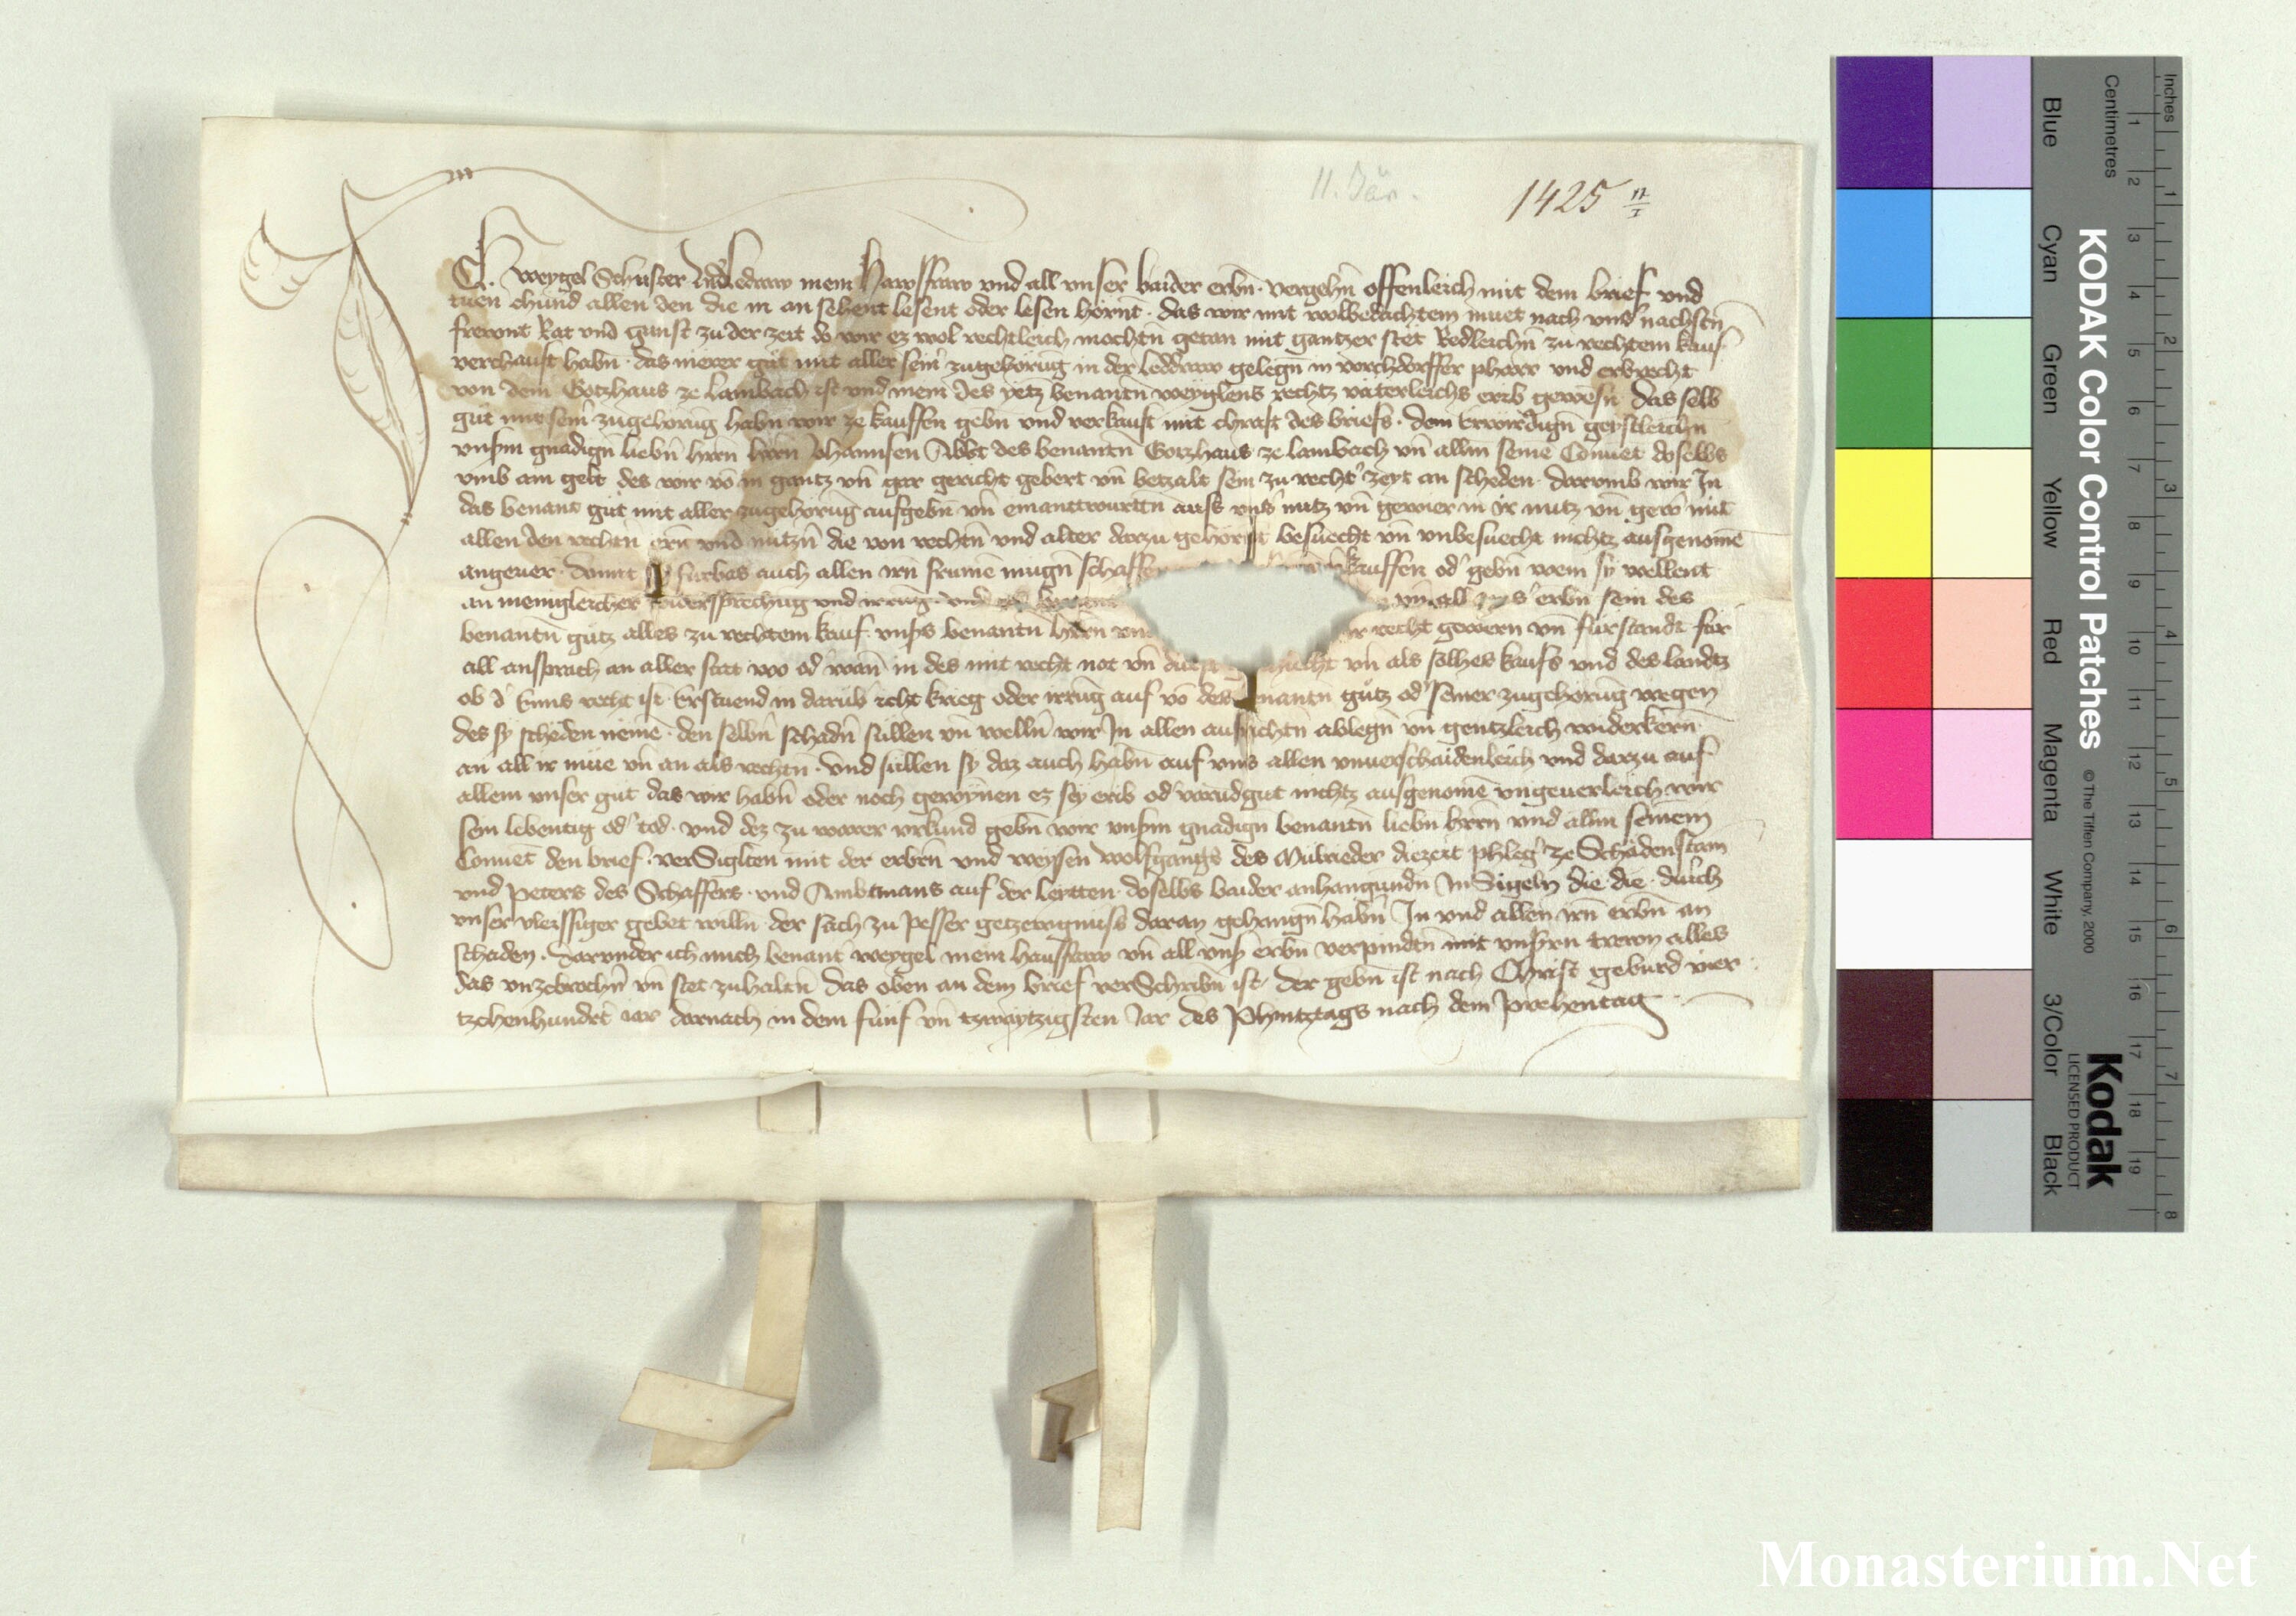 11. Jän.
1425 11/I
Ich weygel Schuster mein Hawsfraw und all unser baider erbn̄ vergehn̄ offenleich mit dem brief und
tuen chund allen den die in an sehent lesent oder lesen hörnt das wir mit wolbedachtem muet nach und nachstn̄
frewnt Rat und gunst zu der zeit do wir ez wol rechtleich mochtn̄ getan mit gantzer stet Redleichn̄ zu rechtem kauf
verchauft habn̄ das gut mit aller seinr̄ zugehörūg in der gelegn̄ in vorchdorffer pharr und erbrecht
von dem Gotzhaus ze Lambach ist und mein des yetz benantn̄ weyglens rechtz väterleichs erib gewesn̄ das selb
gut mit seinr̄ zugehorūg habn̄ wir ze kauffen gebn̄ und verkauft mit chraft des briefs dem Erwirdign̄ geystleichn̄
unsm̄ gnadign̄ liebn̄ hrrn̄ hrrn̄ Johannsen Abbt des benantn̄ Gotzhaus ze lambach un̄ allm̄ seinē Conuet doselbs
umb ain gelt des wir vō in gantz un̄ gar gericht gebert un̄ betzalt sein zu recht' zeyt an scheden darumb wir In
das benant gut mit aller zugehorūg aufgebn̄ un̄ einanttwurttn̄ auss uns' nutz un̄ gewer in ir nutz un̄ gew' mit
allen den rechtn̄ ern̄ und nutzn̄ die von rechtn̄ und alter darzu gehörnt besuecht un̄ unbesuecht nichtz ausgenomē
angeuer damit sy furbas auch allen irn̄ frumē mugn̄ schaffen kauffen od' gebn̄ wem sy wellent
an menigleicher widersprechūg und irrūg und un̄ all uns' erbn̄ sein des
benantn̄ gutz alles zu rechtem kauf unss benantn̄ hrrn̄ recht gewern un̄ furstandt für
all ansprach an aller stat wo od' wan̄ in des mit recht not un̄ un̄ als solhes kaufs und des landtz
ob d' Enns recht ist Erstuend in darub' icht krieg oder irrūg auf vō des benantn̄ gutz od' seiner zugehorūg wegen
des sy scheden nemē den selbn̄ schadn̄ sullen un̄ welln̄ wir In allen ausrichtn̄ ablegn̄ un̄ gentzleich widerkern
an all ir müe un̄ an als rechtn̄ und sullen sy daz auch habn̄ auf uns allen unuerschaidenleich und darzu auf
allem unser gut das wir habn̄ oder noch gewynnen ez sey erib od' varudgut nichtz ausgenomē ungeuerleich wir
sein lebentig od' tod und dez zu warer urkund gebn̄ wir unsm̄ gnadign̄ benantn̄ liebn̄ hrrn̄ und allm̄ seinem
Conuet den brief verSiglten mit der erbrn̄ und weysen wolfgangs des Mulrieder diezeit phleg' ze Schadenstain
und Peters des Schaffers und Ambtmans auf der Leytten doselbs baider anhangundn̄ InSigeln die die durch
unser vleissiger gebet willn̄ der sach zu pesser getzewgnuss daran gehangn̄ habn̄ In und allen irn̄ erbn̄ an
schaden Darunder ich mich benant weygel mein hausfraw un̄ all uns' erbn̄ verpindtn̄ mit unsern trewn alles
das unzebrochn̄ un̄ stet zuhaltn̄ das oben an dem brief verSchribn̄ ist der gebn̄ ist nach Christ geburd vier
tzehenhundert iar darnach in dem funf un̄ tzwaytzigsten Jar des Phintztags nach dem Prehentag
Inches
Centimetres
KODAK Color Control Patches
© The Tiffen Company, 2000
Kodak
LICENSED PRODUCT
Blue
Cyan
Green
Yellow
Red
Magenta
White
3/Color
Black
1
2
3
4
5
6
7
8
9
10
11
12
13
14
15
16
17
18
19
1
2
3
4
5
6
7
8
Monasterium.Net